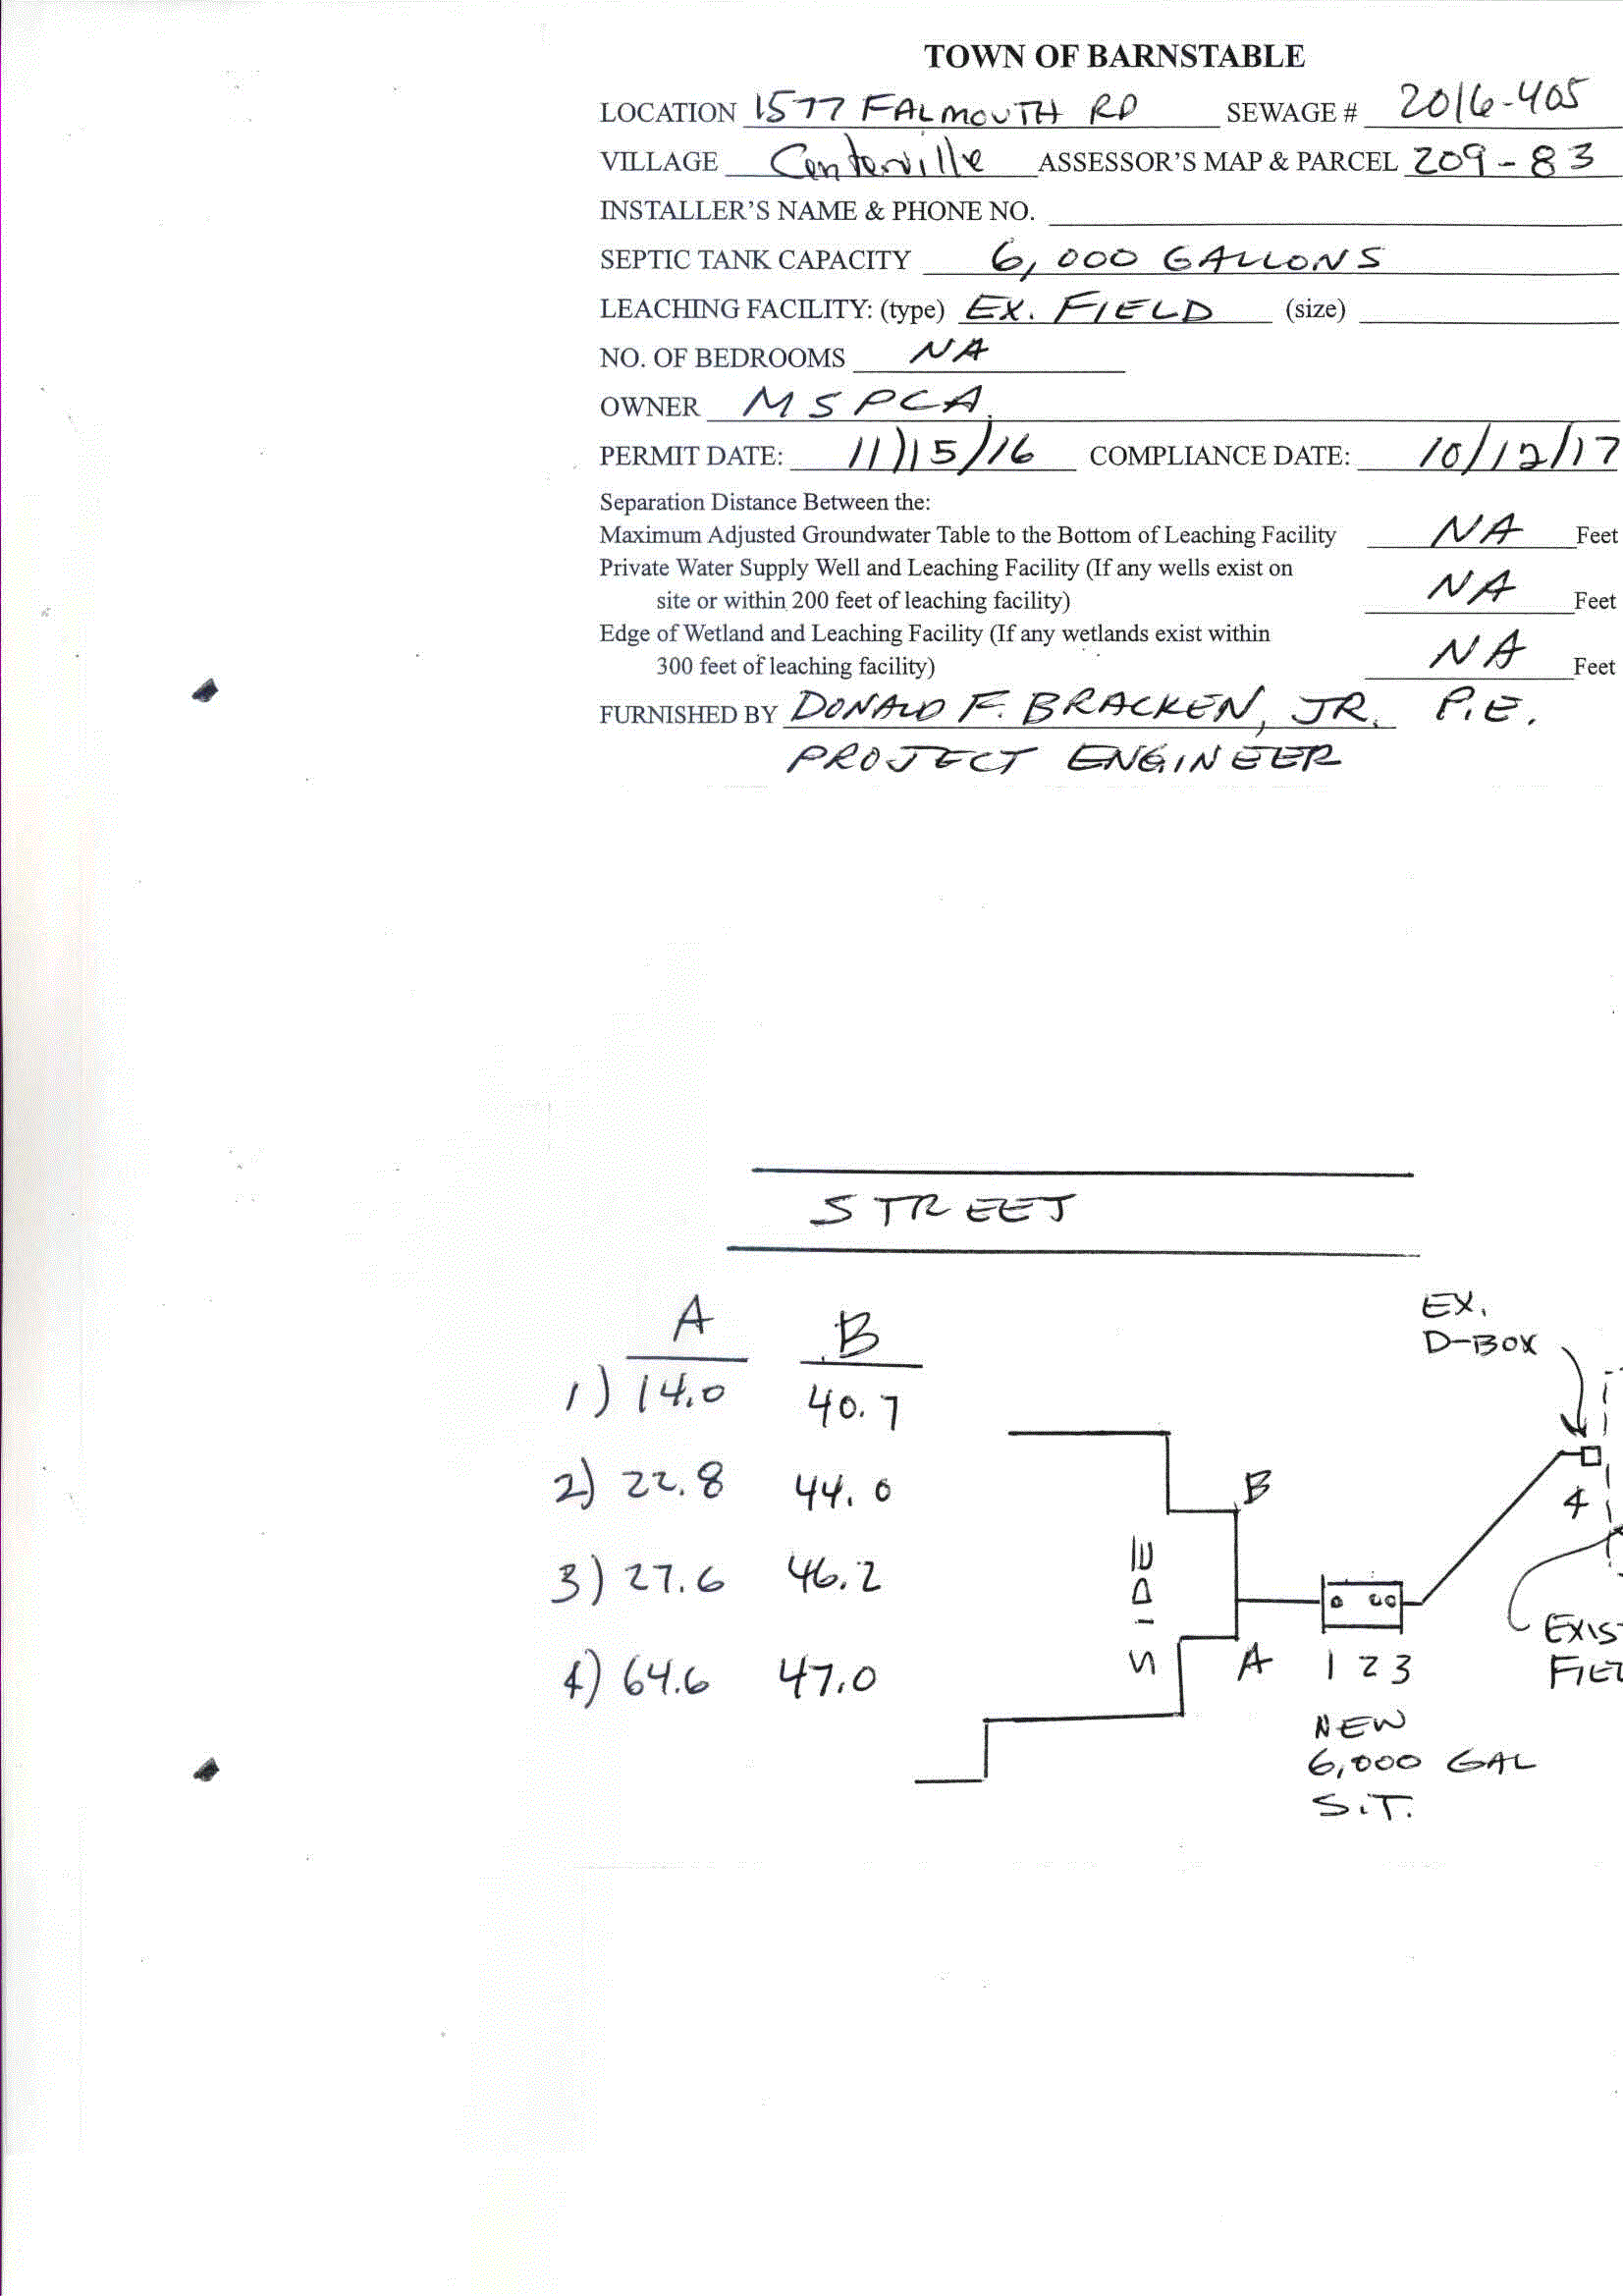 TOWN OF BARNSTABLE
LOCATION 1577 FALMOUTH RD SEWAGE # 2016-405
VILLAGE Centerville ASSESSOR'S MAP & PARCEL 209-83
INSTALLER'S NAME & PHONE NO.
SEPTIC TANK CAPACITY 6,000 GALLONS
LEACHING FACILITY: (type) EX. FIELD (size)
NO. OF BEDROOMS NA
OWNER MSPCA
PERMIT DATE: 11/15/16 COMPLIANCE DATE: 10/12/17
Separation Distance Between the:
Maximum Adjusted Groundwater Table to the Bottom of Leaching Facility NA Feet
Private Water Supply Well and Leaching Facility (If any wells exist on
site or within 200 feet of leaching facility) NA Feet
Edge of Wetland and Leaching Facility (If any wetlands exist within
300 feet of leaching facility) NA Feet
FURNISHED BY DONALD F. BRACKEN, JR. P.E.
PROJECT ENGINEER
STREET
A B
1) 14.0 40.7
2) 22.8 44.0
3) 27.6 46.2
4) 64.6 47.0
EX.
D-BOX
4
B
SIDE
A
1 2 3
NEW
6,000 GAL
S.T.
EXIS
FIEL